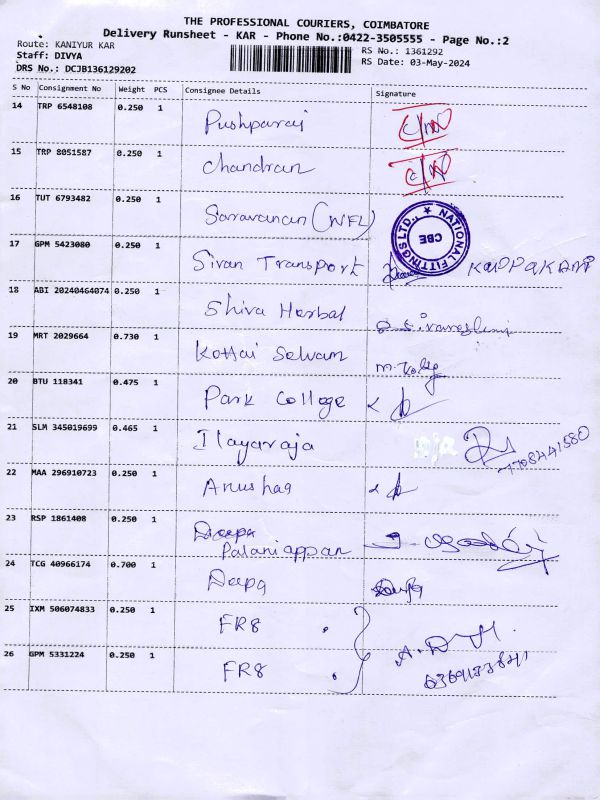 THE PROFESSIONAL COURIERS, COIMBATORE
Delivery Runsheet - KAR - Phone No.:0422-3505555 - Page No.:2
Route: KANIYUR KAR
Staff: DIVYA
DRS No.: DCJB136129202
RS No.: 1361292
RS Date: 03-May-2024
S No Consignment No Weight PCS Consignee Details Signature
14 TRP 6548108 0.250 1 Pushparaj
15 TRP 8051587 0.250 1 Chandran
16 TUT 6793482 0.250 1 Saravanan (NFL)
NATIONAL FITTINGS LTD., ★
CBE
17 GPM 5423080 0.250 1 Sivan Transport
18 ABI 20240464074 0.250 1 Shiva Herbal
19 MRT 2029664 0.730 1 Kottai Selvam
20 BTU 118341 0.475 1 Park College
21 SLM 345019699 0.465 1 Ilayaraja 7708441580
22 MAA 296910723 0.250 1 Anushaa
23 RSP 1861408 0.250 1 Deepa
Palaniappan
24 TCG 40966174 0.700 1 Deepa
25 IXM 506074833 0.250 1 FR8
26 GPM 5331224 0.250 1 FR8